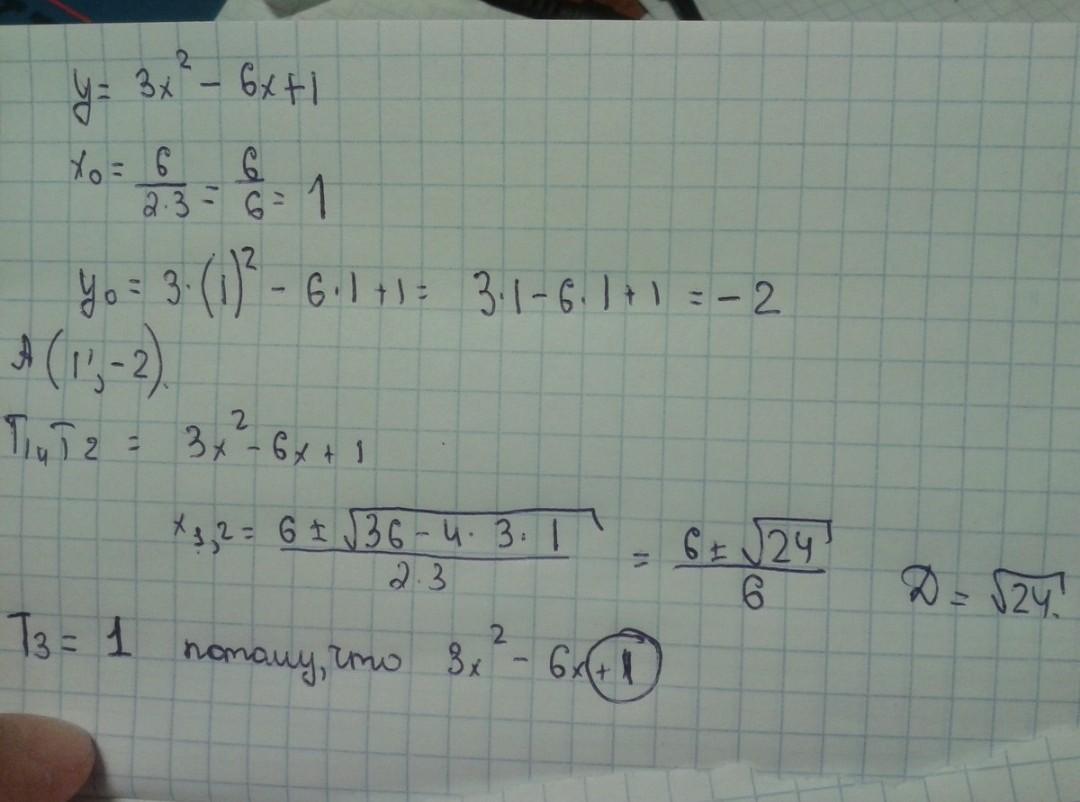 y = 3x² - 6x + 1
x₀ = 6/(2·3) = 6/6 = 1
y₀ = 3·(1)² - 6·1 + 1 = 3·1 - 6·1 + 1 = -2
A (1; -2).
T₁ и T₂ = 3x² - 6x + 1
x₁,₂ = (6 ± √(36 - 4·3·1))/(2·3) = (6 ± √24)/6 D = √24.
T₃ = 1 потому, что 3x² - 6x + 1